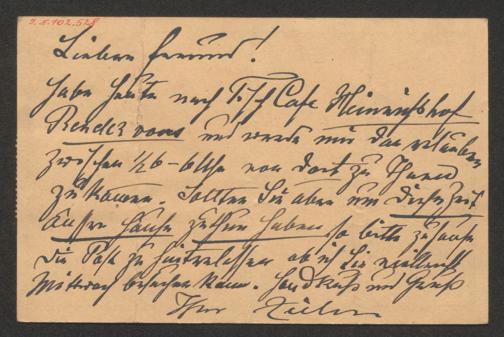 J.N.102.528
Lieber Freund!
Habe heute nach Tisch Cafe Heinrichshof
Rendezvous und werde mir dann erlauben
zwischen 1/2 6 – 6 Uhr von dort zu Ihnen
zu kommen. Sollten Sie aber um diese Zeit
außer Hause zu thun haben so bitte zuhause
die Post zu hinterlassen ob ich Sie vielleicht
Mittwoch besuchen kann. Handkuß und Gruß
Ihr